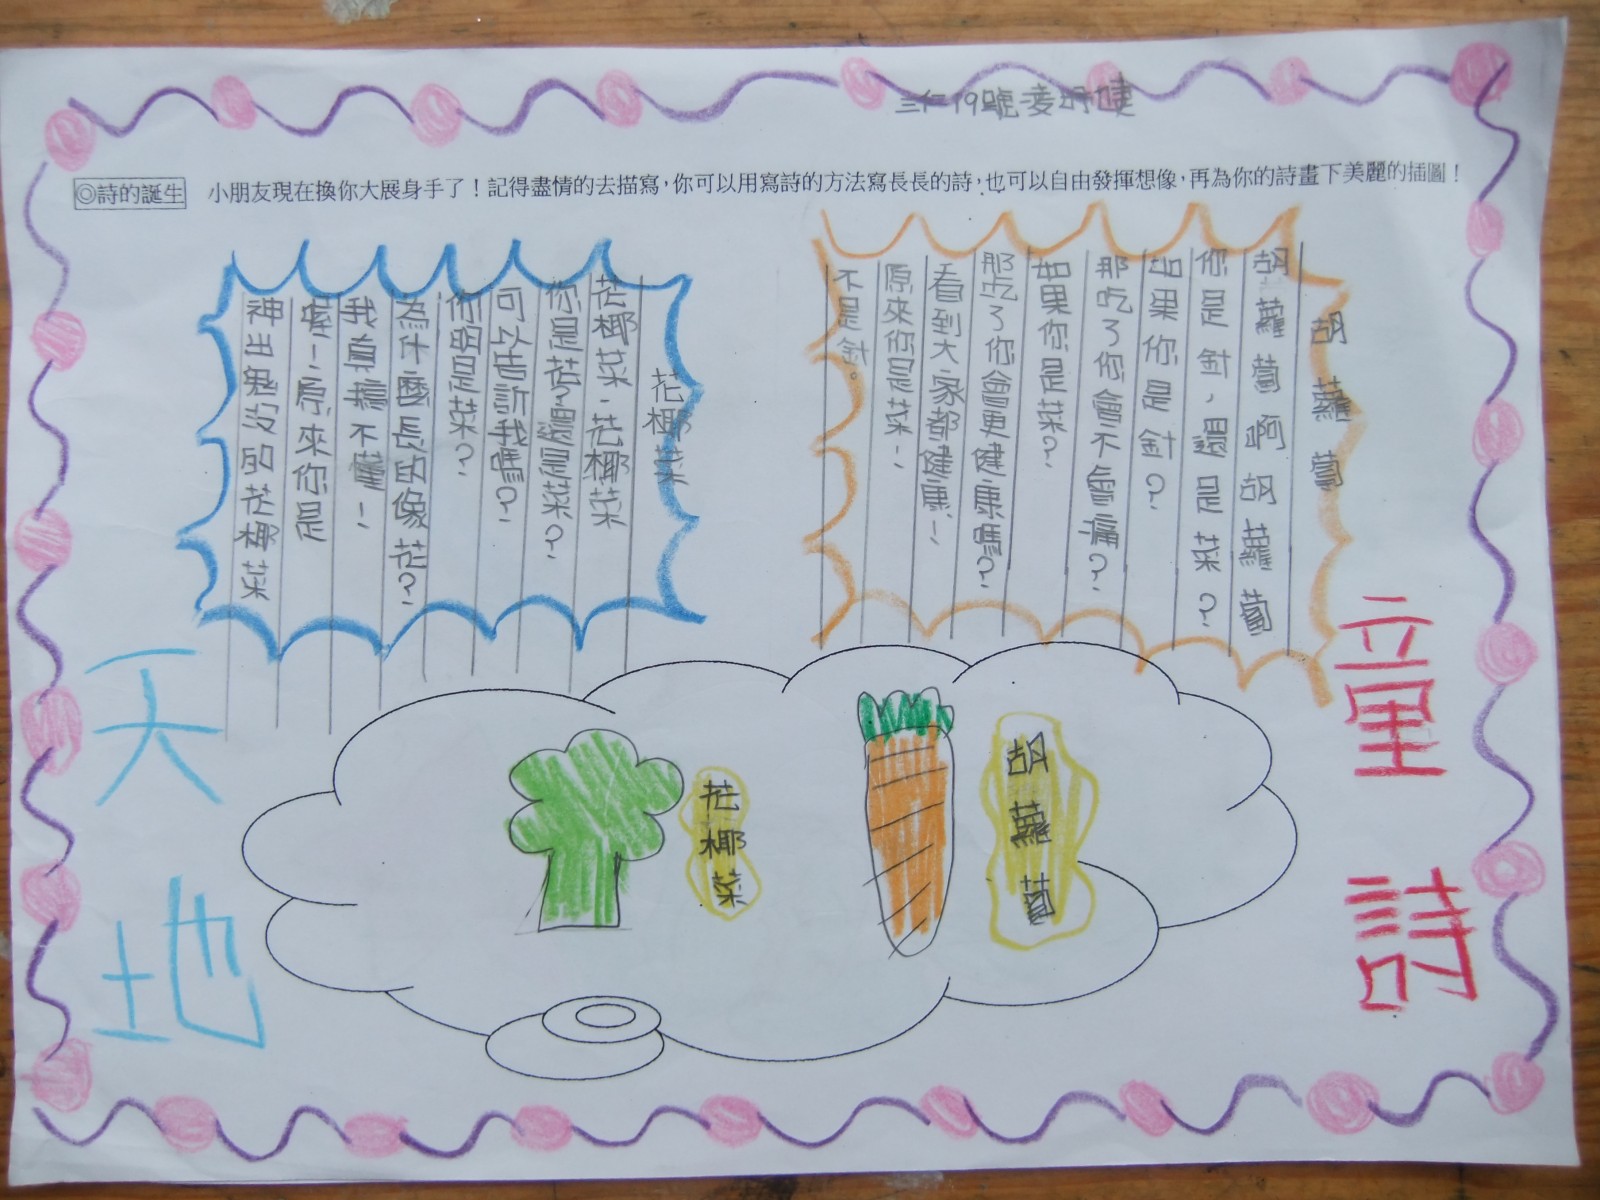 三仁19號
◎詩的誕生
小朋友現在換你大展身手了！記得盡情的去描寫，你可以用寫詩的方法寫長長的詩，也可以自由發揮想像，再為你的詩畫下美麗的插圖！
童詩
天地
胡蘿蔔
胡蘿蔔啊胡蘿蔔
你是針，還是菜？
如果你是針？
那吃了你會不會痛？
如果你是菜？
那吃了你會更健康嗎？
看到大家都健康！
原來你是菜！
不是針。
花椰菜
花椰菜，花椰菜
你是花？還是菜？
可以告訴我嗎？
你明是菜？
為什麼長的像花？
我真搞不懂！
喔！原來你是
神出鬼沒的花椰菜
胡蘿蔔
花椰菜